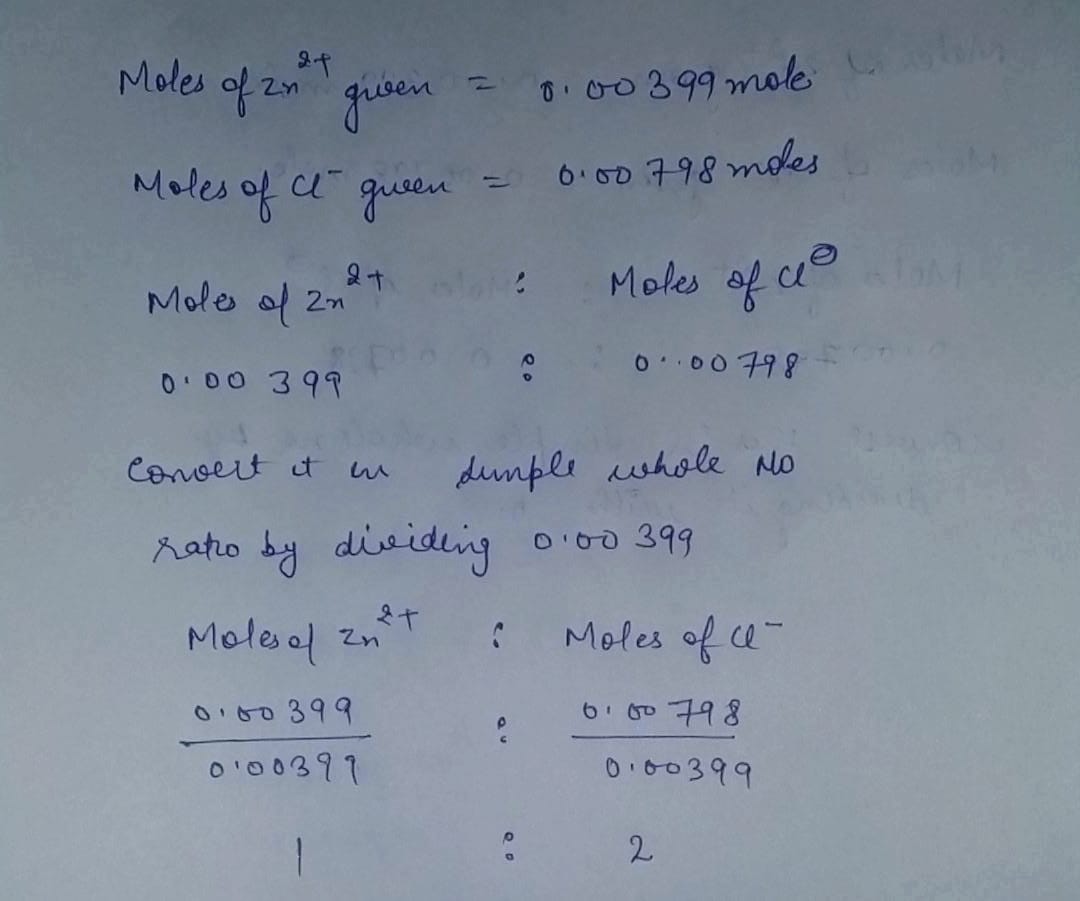 Moles of Zn²⁺ given = 0.00399 mole
Moles of Cl⁻ given = 0.00798 moles
Moles of Zn²⁺ : Moles of Cl⊖
0.00 399 : 0..00798
Convert it in simple whole No
ratio by dividing 0.00 399
Moles of Zn²⁺ : Moles of Cl⁻
0.00399 : 0.00798
0.00399 0.00399
1 : 2